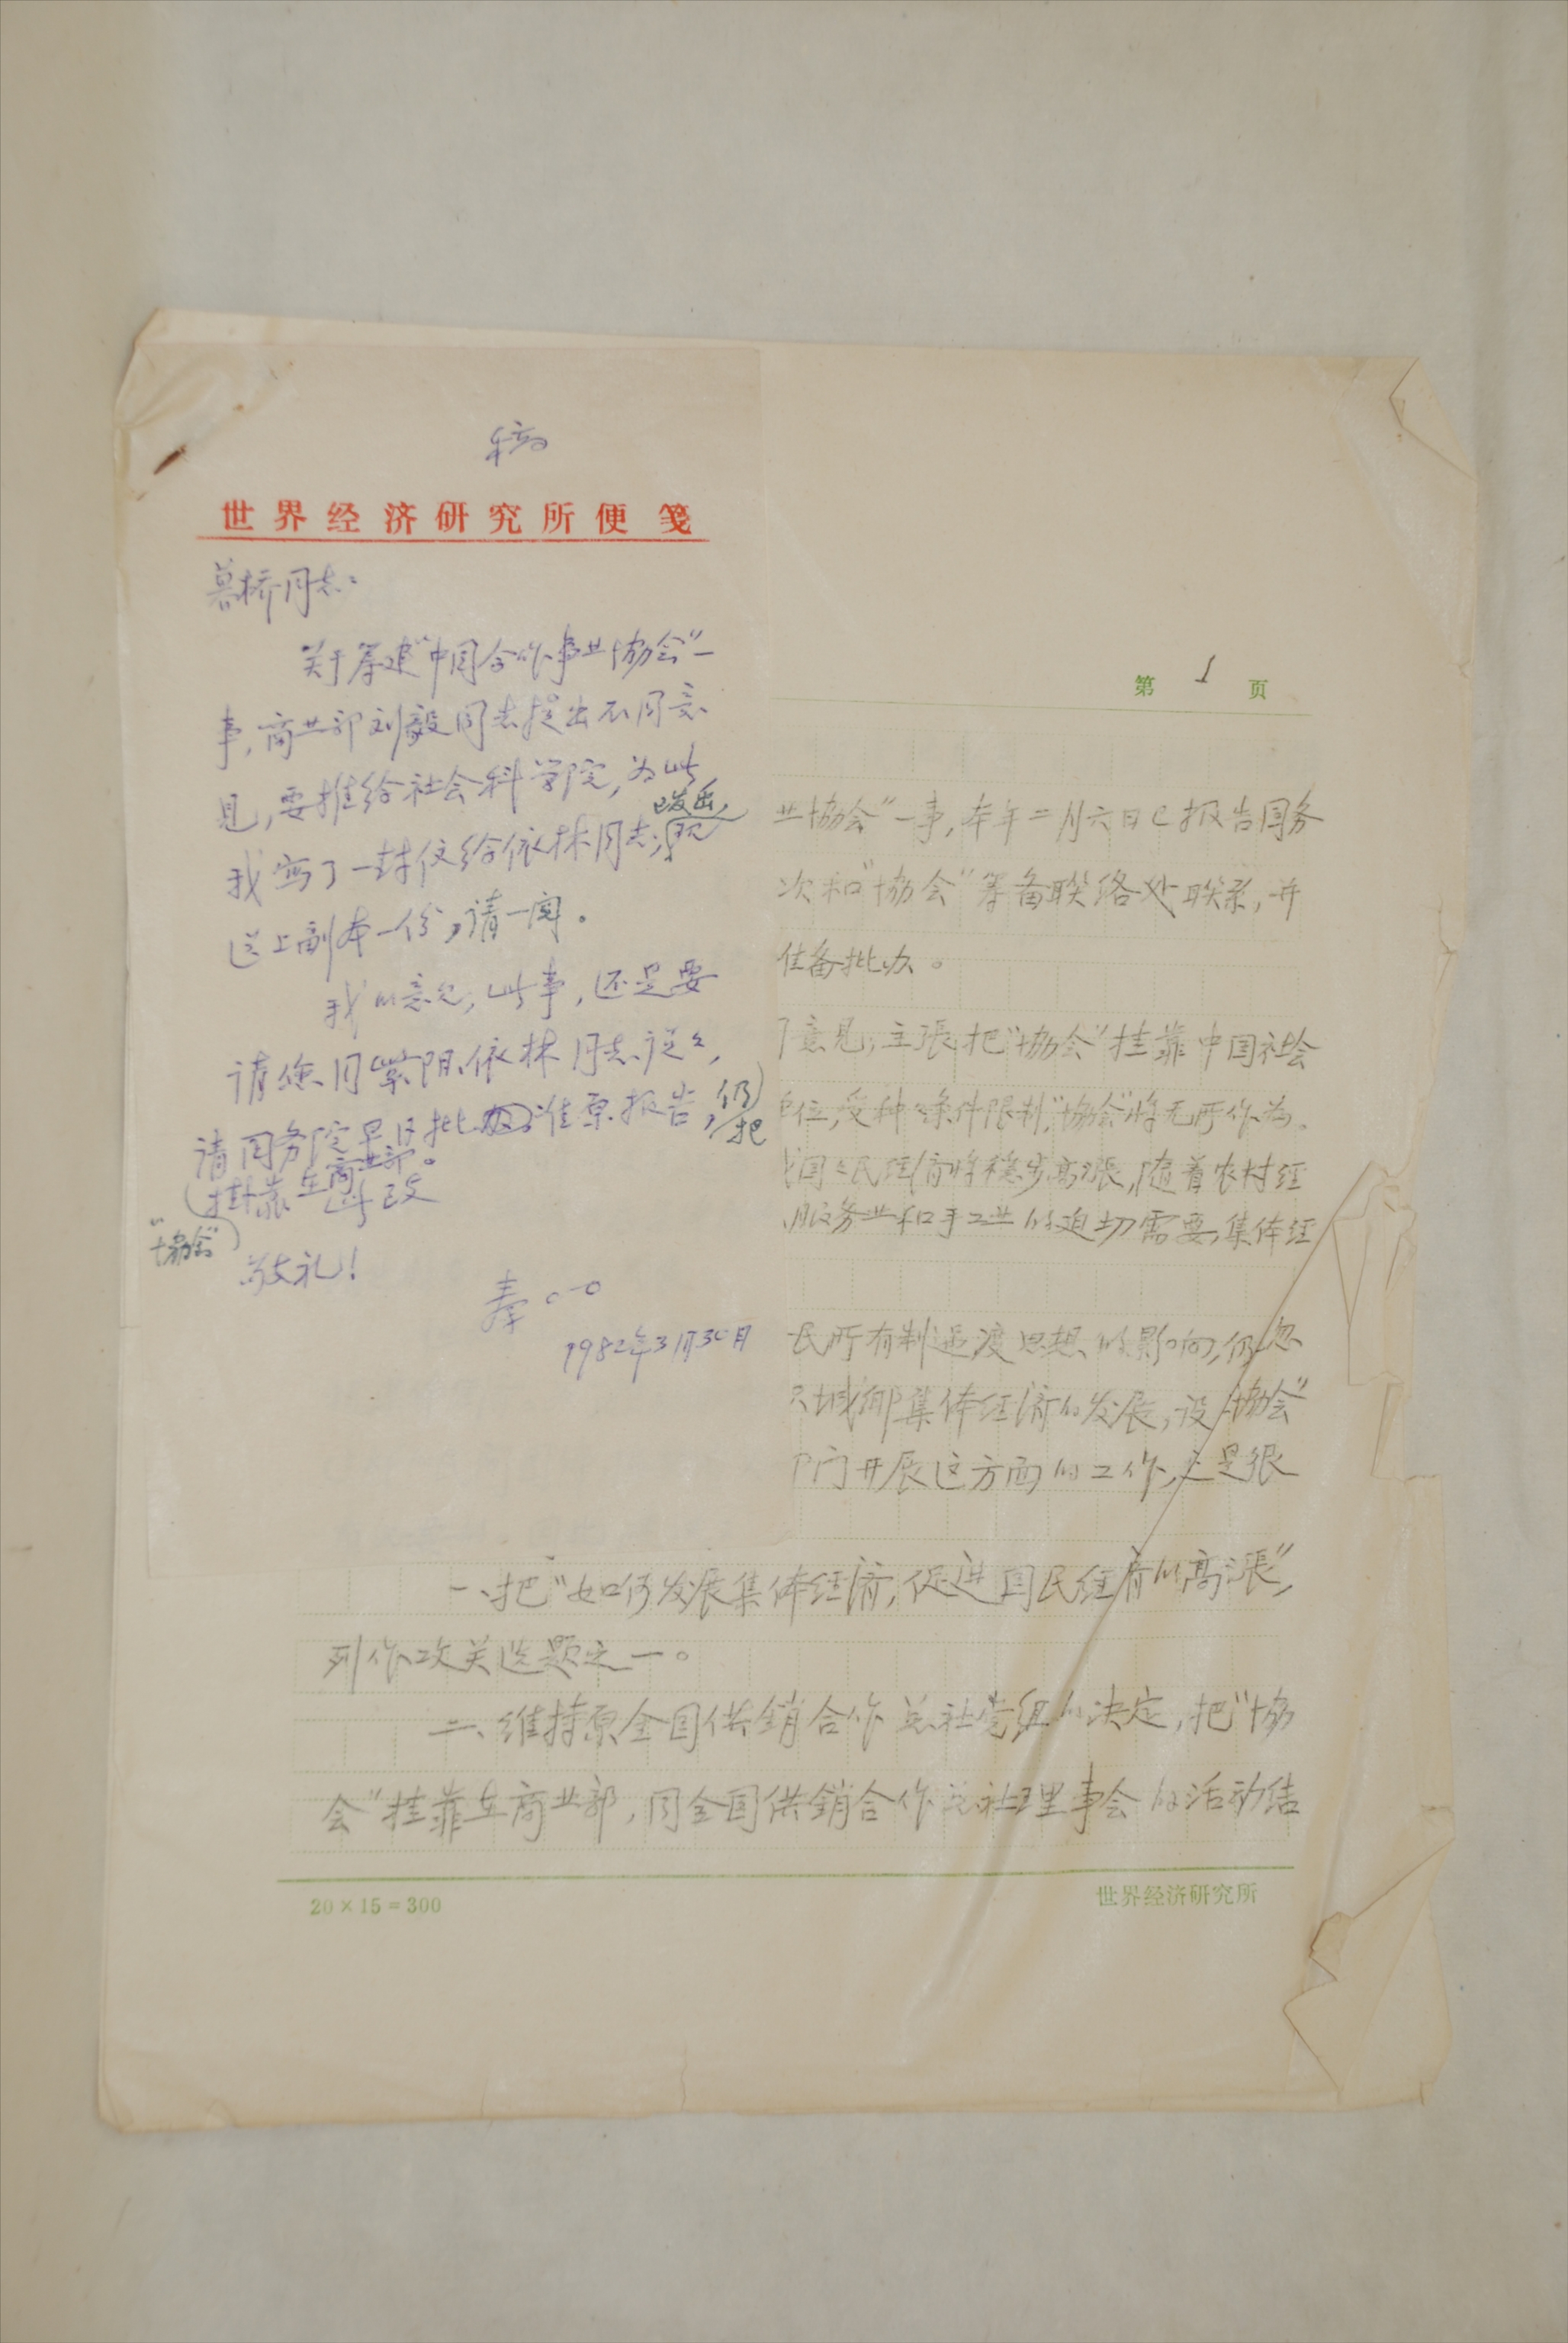 稿
世界经济研究所便笺
慕桥同志：
关于筹建“中国合作事业协会”一
事，商业部刘毅同志提出不同意
见，要推给社会科学院，为此
我写了一封信给依林同志，
已发出，现
送上副本一份，请一阅。
我的意见，此事，还是要
请您同紫阳、依林同志谈谈，
请国务院早日批准原报告，仍把
“协会”
挂靠在商业部。
此致
敬礼！
1982年3月30日
第 1 页
业协会”一事，本年二月六日已报告国务
次和“协会”筹备联络处联系，并
准备批办。
了意见，主张把“协会”挂靠中国社会
单位，受种种条件限制，“协会”将无所作为。
我国国民经济将稳步高涨，随着农村经
服务业和手工业的迫切需要，集体经
民所有制过渡思想的影响，仍忽
城乡集体经济的发展，设“协会”
部门开展这方面的工作，还是很
一、把“如何发展集体经济，促进国民经济的高涨”，
列作攻关选题之一。
二、维持原全国供销合作总社党组的决定，把“协
会”挂靠在商业部，同全国供销合作总社理事会的活动结
20×15＝300
世界经济研究所